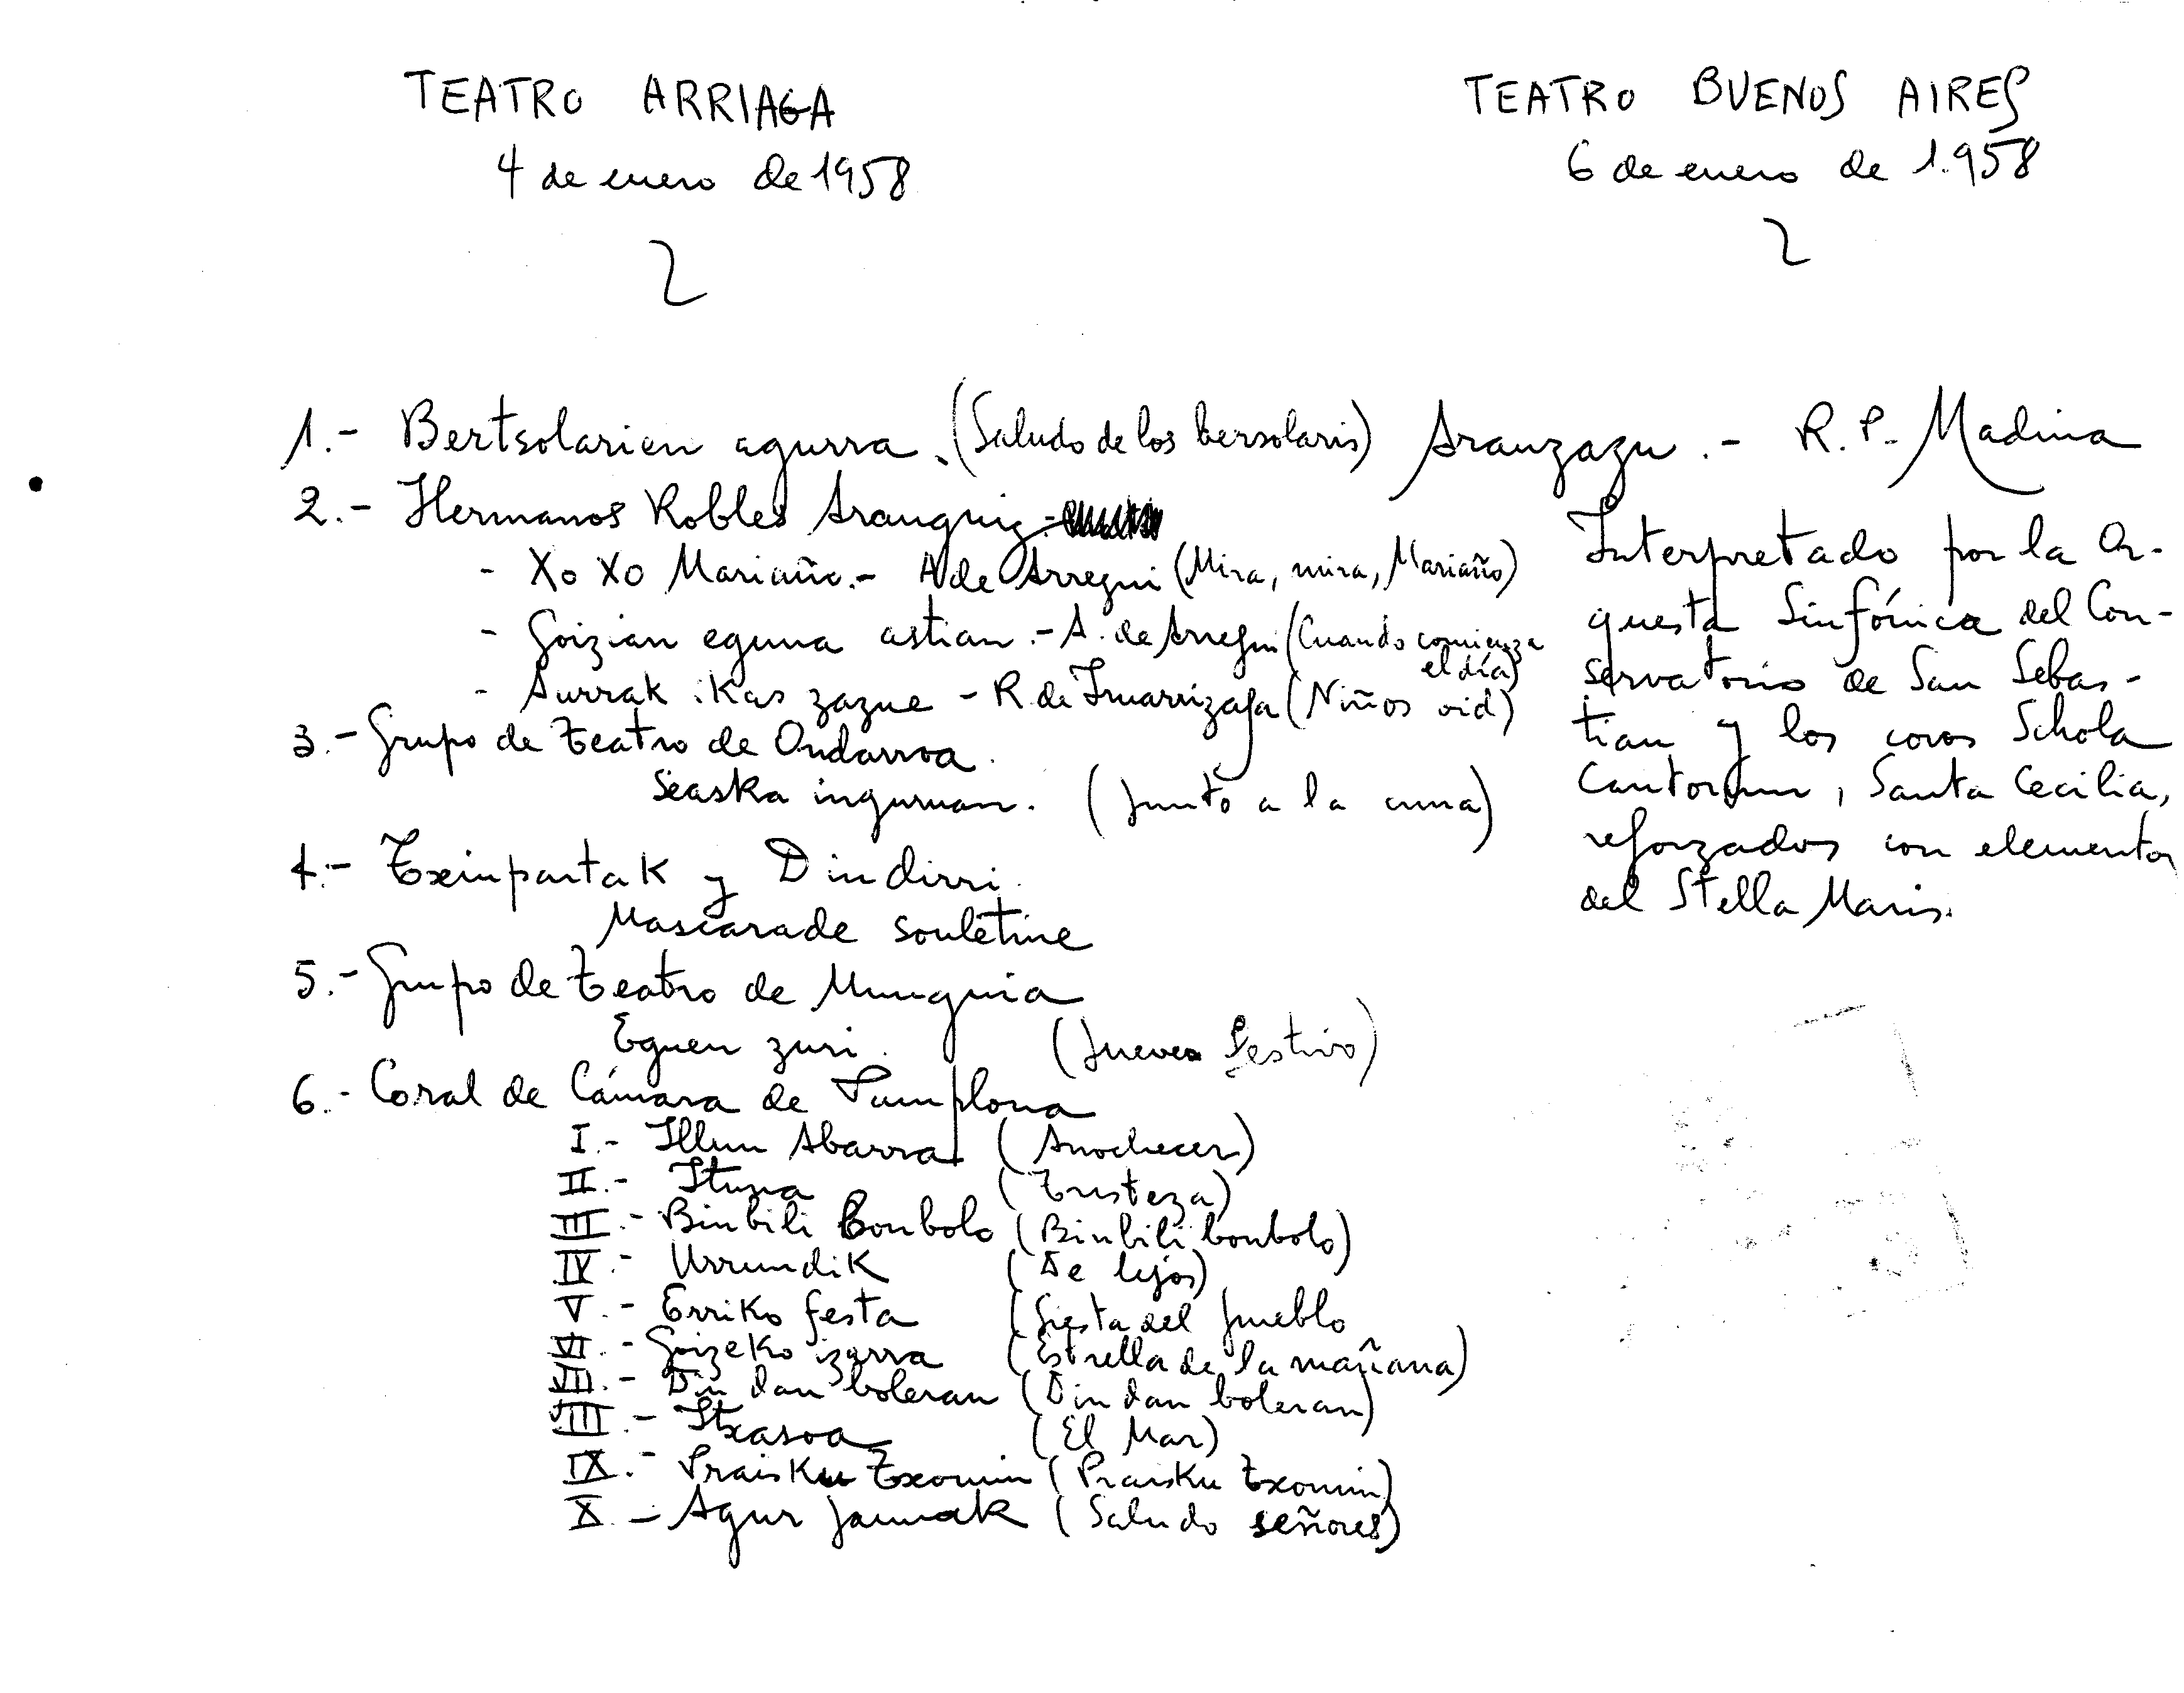 TEATRO ARRIAGA
4 de enero de 1958
2
1.- Bertsolarien agurra. (Saludo de los bersolaris)
2.- Hermanos Robles Aranguiz.-
- Xo Xo Mariaño.- A de Arregui (Mira, mira, Mariaño)
- Goizian eguna astian.- A. de Arregui (Cuando comienza
el día)
- Aurrak ikas zazue - R. de Inuarrizaga (Niños oid)
3.- Grupo de teatro de Ondarroa.
Seaska inguruan. (Junto a la cuna)
4.- Txinpartak y Dindirri.
Mascarade souletine
5.- Grupo de teatro de Munguia
Eguen zuri. (Jueves festivo)
6.- Coral de Cámara de Pamplona
I.- Illun Abarra (Anochecer)
II.- Ituna (Tristeza)
III.- Binbili Bonbolo (Binbili bonbolo)
IV.- Urrundik (De lejos)
V.- Erriko festa (Fiesta del pueblo
VI.- Goizeko izarra (Estrella de la mañana)
VII.- Din dan boleran (Din dan boleran)
VIII.- Itxasoa (El Mar)
IX.- Praisku Txomin (Praisku Txomin)
X.- Agur jaunak (Saludo señores)
TEATRO BUENOS AIRES
6 de enero de 1.958
2
Aranzazu.- R.P. Madina
Interpretado por la Or-
questa Sinfónica del Con-
servatorio de San Sebas-
tian y los coros Schola
Cantorum, Santa Cecilia,
reforzados con elementos
del Stella Maris.